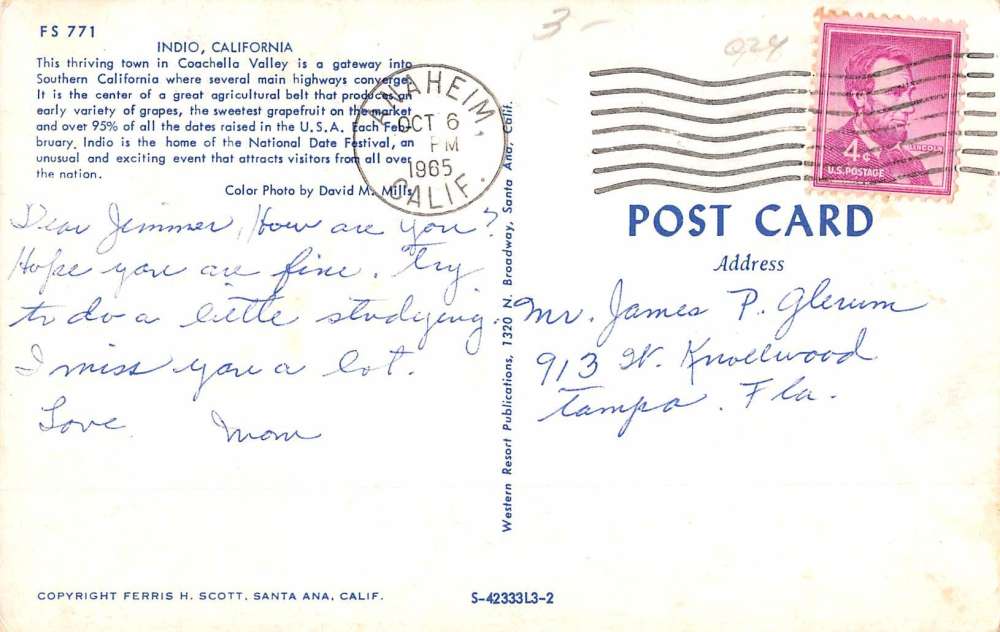 FS 771
INDIO, CALIFORNIA
This thriving town in Coachella Valley is a gateway into
Southern California where several main highways converge.
It is the center of a great agricultural belt that produces an
early variety of grapes, the sweetest grapefruit on the market
and over 95% of all the dates raised in the U.S.A. Each Feb-
bruary, Indio is the home of the National Date Festival, an
unusual and exciting event that attracts visitors from all over
the nation.
Color Photo by David M. Mills
ANAHEIM, CALIF.
OCT 6
PM
1965
Dear Jimmer, How are you?
Hope you are fine. Try
to do a little studying
I miss you a lot.
Love
Mom
Western Resort Publications, 1320 N. Broadway, Santa Ana, Calif.
3-
024
LINCOLN
4¢
U.S. POSTAGE
POST CARD
Address
Mr. James P. Glerum
913 W. Knollwood
Tampa. Fla.
COPYRIGHT FERRIS H. SCOTT, SANTA ANA, CALIF.
S-42333L3-2